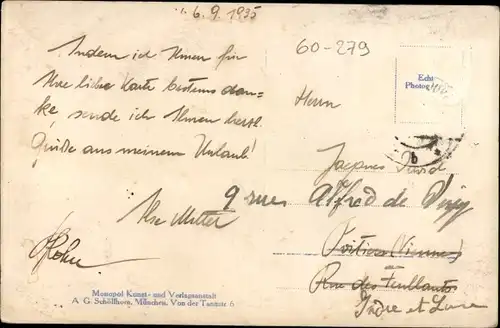 6.9.1935
60-279
Indem ich Ihnen für
Ihre liebe Karte bestens dan-
ke sende ich Ihnen herzl.
Grüße aus meinem Urlaub!
Echt
Photogr
Herrn
Jacques
9 rue Alfred de Vigny
Poitiers Vienne
Rue des Feuillants
Indre et Loire
Monopol Kunst- und Verlagsanstalt
A. G. Schöllhorn, München, Von der Tannstr 6